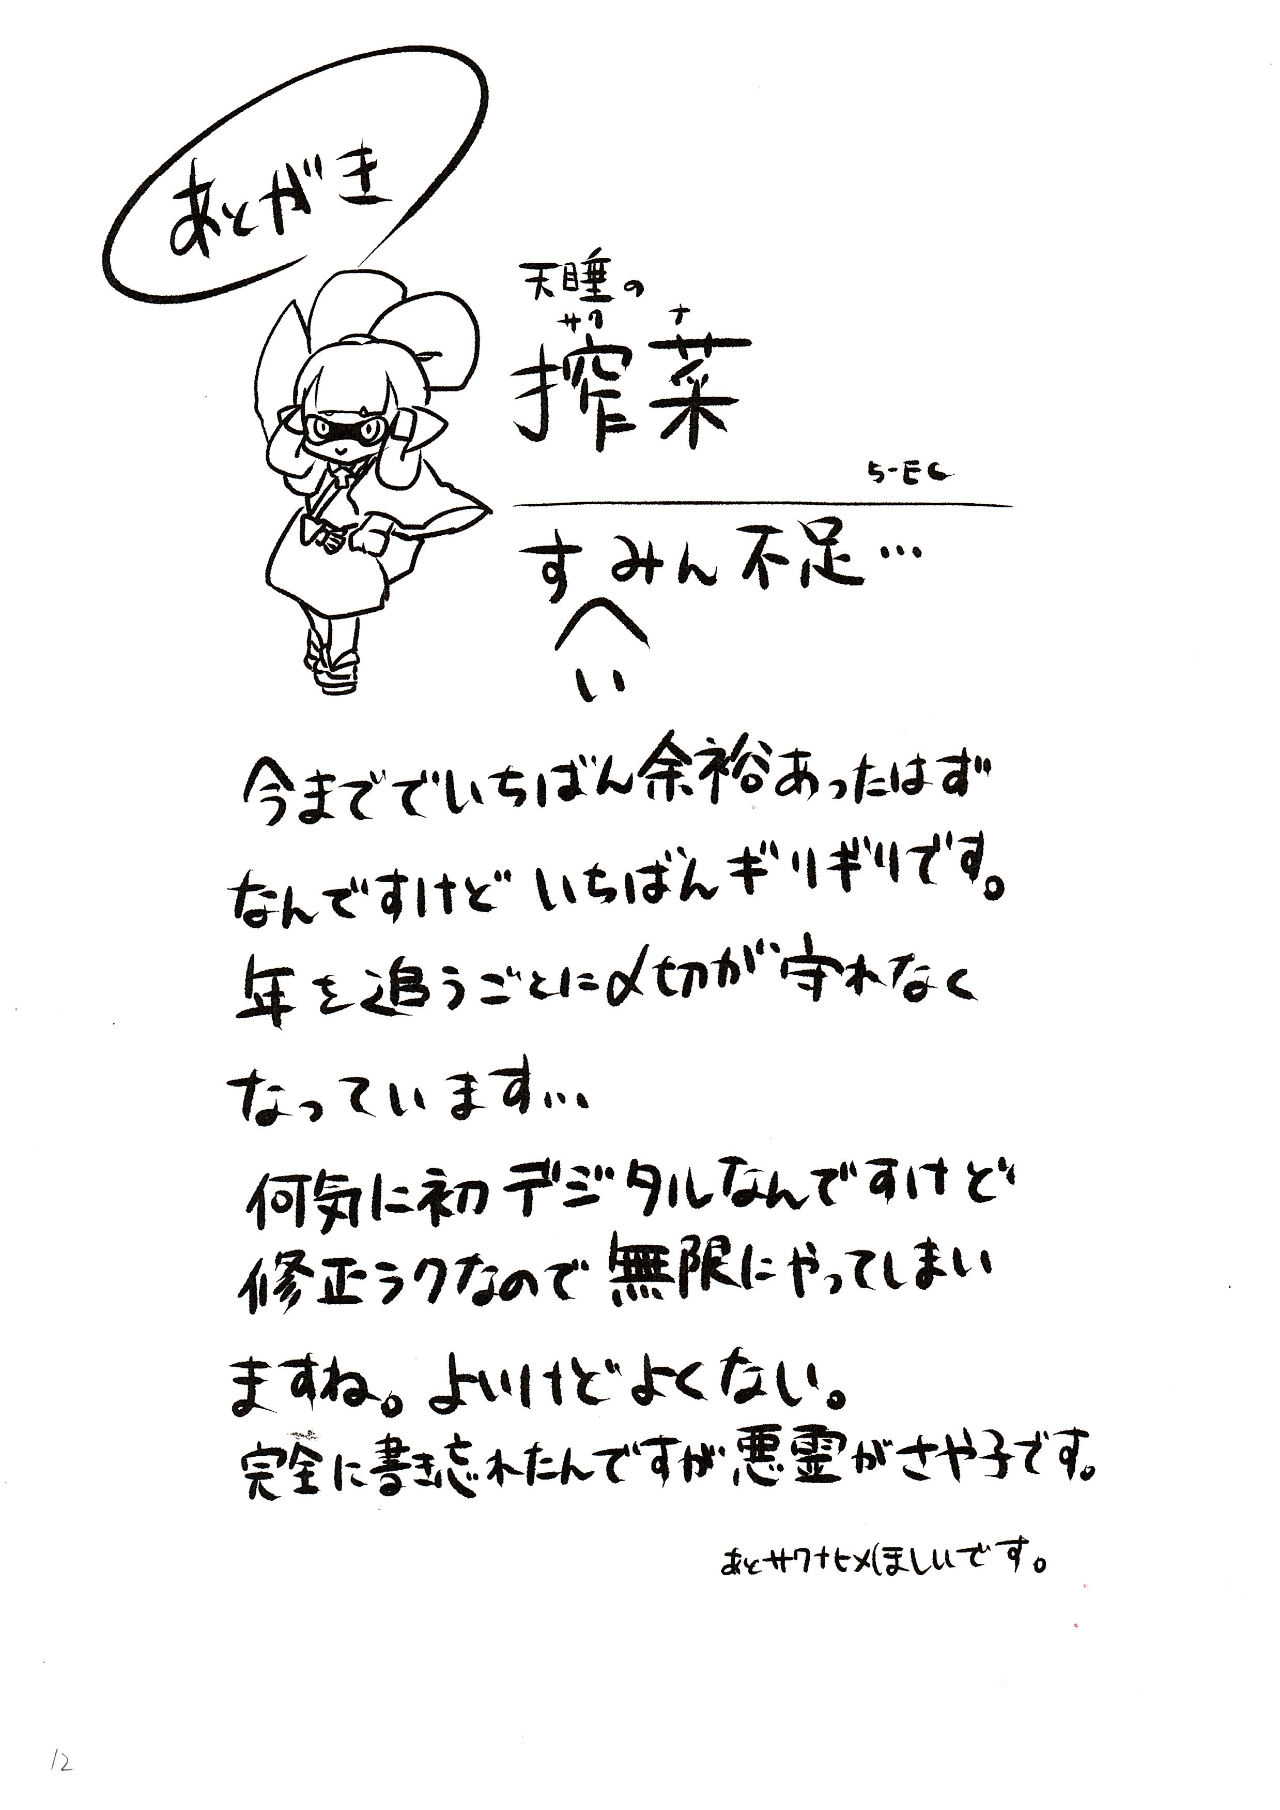 あとがき
天睡の
サク ナ
搾菜
5-EC
すみん不足…
い
今まででいちばん余裕あったはず
なんですけどいちばんギリギリです。
年を追うごとに〆切が守れなく
なっています…
何気に初デジタルなんですけど
修正ラクなので無限にやってしまい
ますね。よいけどよくない。
完全に書き忘れたんですが悪霊がさや子です。
あとサクナヒメほしいです。
12